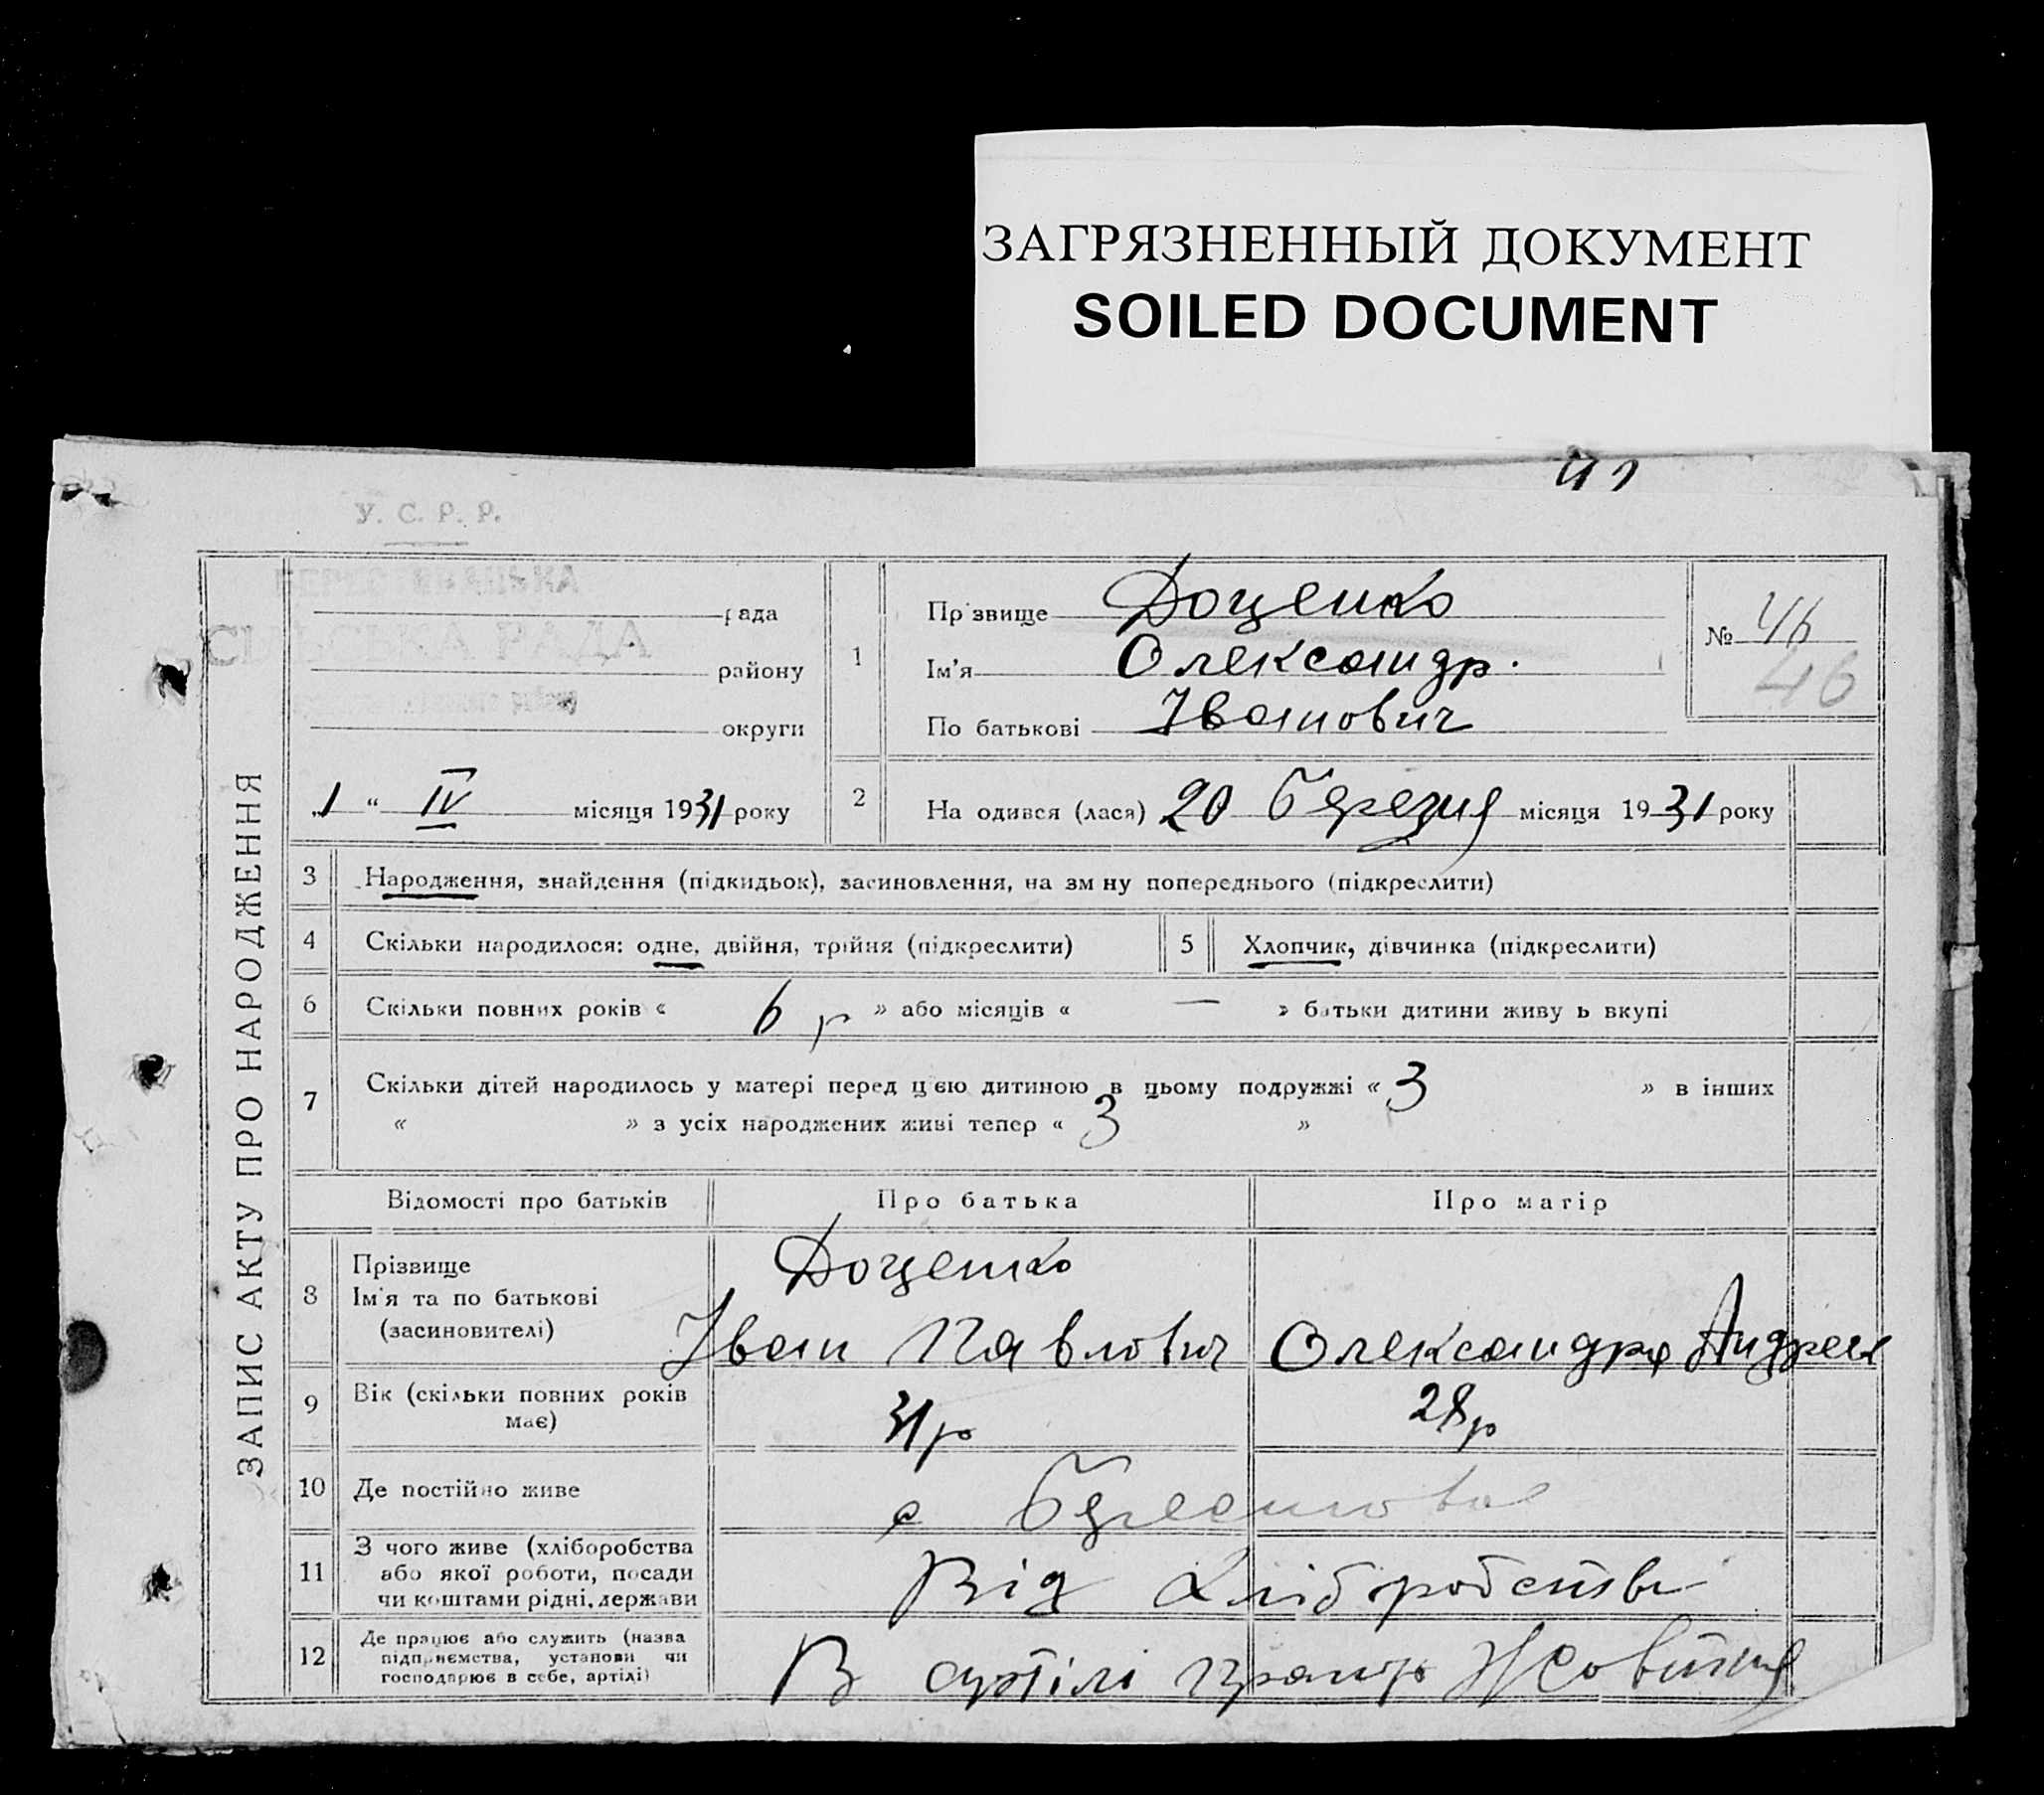 ЗАГРЯЗНЕННЫЙ ДОКУМЕНТ
SOILED DOCUMENT
У. С. Р. Р.
СІЛЬСЬКА РАДА
ЗАПИС АКТУ ПРО НАРОДЖЕННЯ
рада
району
округи
„1 “ IV місяця 1931 року
1
Прізвище Доценко
Ім'я Олександр.
По батькові Іванович
№ 46
46
2 На одився (лася) 20 березня місяця 1931 року
3 Народження, знайдення (підкидьок), засиновлення, на зм ну попереднього (підкреслити)
4 Скільки народилося: одне, двійня, трійня (підкреслити) 5 Хлопчик, дівчинка (підкреслити)
6 Скільки повних років « 6 р » або місяців « — » батьки дитини живу ь вкупі
7 Скільки дітей народилось у матері перед цією дитиною в цьому подружжі « 3 » в інших
« » з усіх народжених живі тепер « 3 »
Відомості про батьків Про батька Про матір
8 Прізвище Доценко
Ім'я та по батькові Іван Павлович Олександра Андреев
(засиновителі)
9 Вік (скільки повних років має) 31 р 28 р
10 Де постійно живе с
11 З чого живе (хліборобства або якої роботи, посади чи коштами рідні, держави Від хліборобства
12 Де працює або служить (назва підприємства, установи чи господарює в себе, артілі) В артілі праця